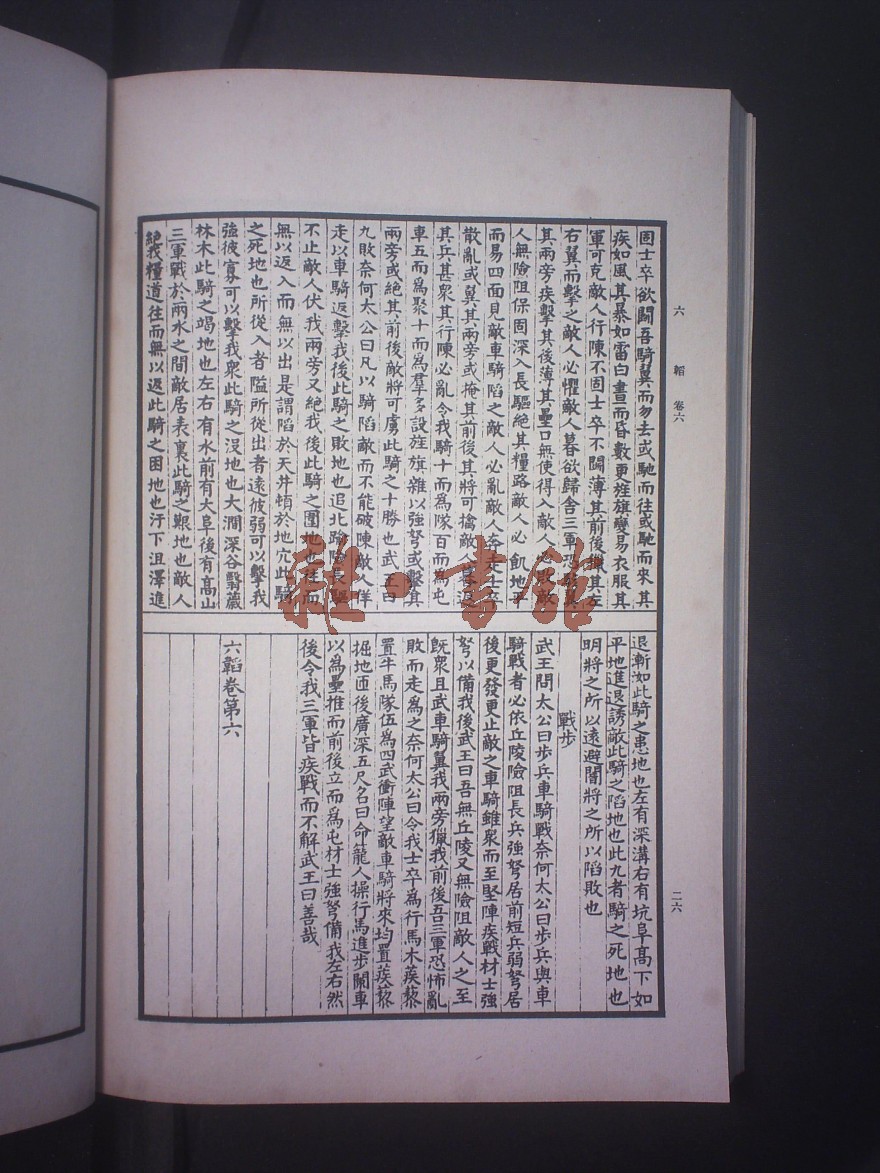 固士卒欲鬭吾騎翼而勿去或馳而往或馳而來其
疾如風其暴如雷白晝而昏數更旌旗變易衣服其
軍可克敵人行陳不固士卒不鬭薄其前後獵其左
右翼而擊之敵人必懼敵人暮欲歸舍三軍恐駭翼
其兩旁疾擊其後薄其壘口無使得入敵人必敗敵
人無險阻保固深入長驅絕其糧路敵人必飢地平
而易四面見敵車騎陷之敵人必亂敵人奔走士卒
散亂或翼其兩旁或掩其前後其將可擒敵人暮返
其兵甚衆其行陳必亂令我騎十而爲隊百而爲屯
車五而爲聚十而爲羣多設旌旗雜以強弩或擊其
兩旁或絕其前後敵將可虜此騎之十勝也武王曰
九敗奈何太公曰凡以騎陷敵而不能破陳敵人佯
走以車騎返擊我後此騎之敗地也追北踰險長驅
不止敵人伏我兩旁又絕我後此騎之圍地也往而
無以返入而無以出是謂陷於天井頓於地穴此騎
之死地也所從入者隘所從出者遠彼弱可以擊我
強彼寡可以擊我衆此騎之沒地也大澗深谷翳薉
林木此騎之竭地也左右有水前有大阜後有高山
三軍戰於兩水之間敵居表裏此騎之艱地也敵人
絕我糧道往而無以返此騎之困地也汙下沮澤進
退漸洳此騎之患地也左有深溝右有坑阜高下如
平地進退誘敵此騎之陷地也此九者騎之死地也
明將之所以遠避闇將之所以陷敗也
戰步
武王問太公曰步兵車騎戰奈何太公曰步兵與車
騎戰者必依丘陵險阻長兵強弩居前短兵弱弩居
後更發更止敵之車騎雖衆而至堅陣疾戰材士強
弩以備我後武王曰吾無丘陵又無險阻敵人之至
既衆且武車騎翼我兩旁獵我前後吾三軍恐怖亂
敗而走爲之奈何太公曰令我士卒爲行馬木蒺藜
置牛馬隊伍爲四武衝陣望敵車騎將來均置蒺藜
掘地匝後廣深五尺名曰命籠人操行馬進步闌車
以爲壘推而前後立而爲屯材士強弩備我左右然
後令我三軍皆疾戰而不解武王曰善哉
六韜卷第六
六韜 卷六
二六
雜·書館